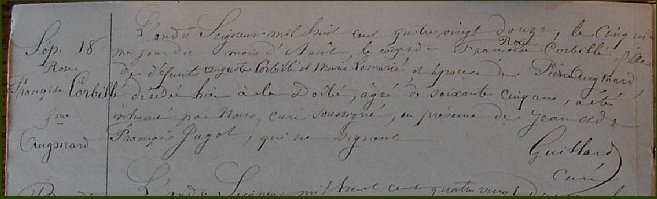 Sép. 18
Rose
Françoise Corbillé
fme
Cugnard
L'an du Seigneur mil huit cent quatre vingt douze, le cinquiè
me jour du mois d'Août, le corps de Françoise Rose Corbillé, fille
de défunts Auguste Corbillé et Marie et épouse de Pierre Cugnard,
décédée hier à la Doité, agée de soixante cinq ans, a été
inhumé par Nous, curé soussigné, en présence de Jean et de
François Jugot, qui ne signent
Guillard
Curé
L'an du Seigneur mil huit cent quatre vingt